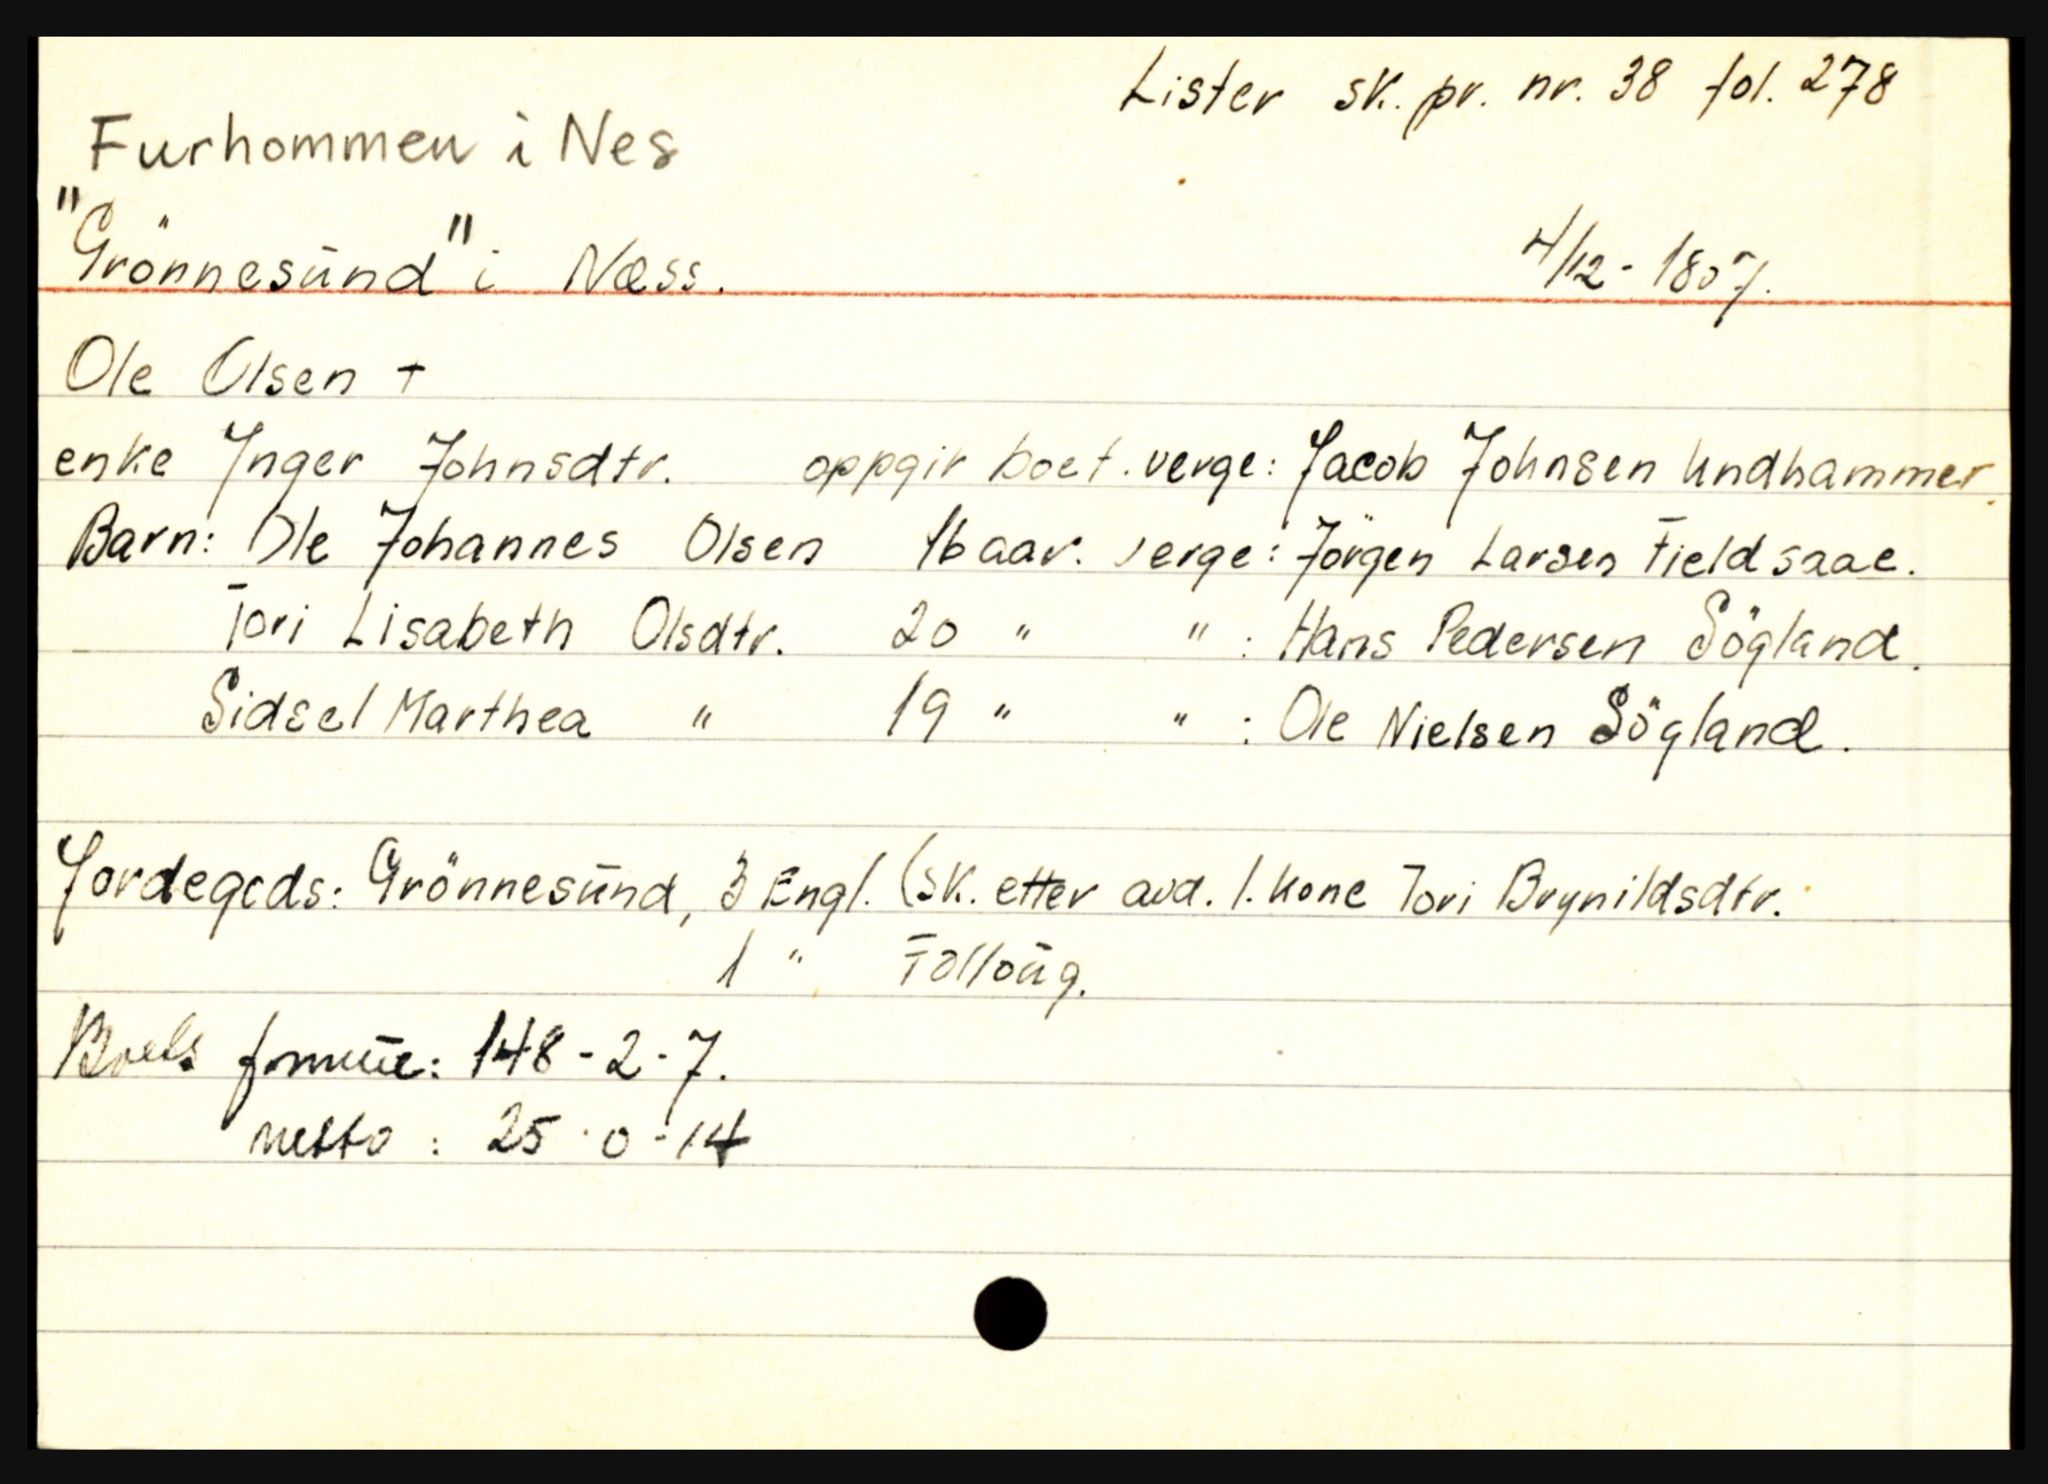 Lister sk. pr. nr. 38 fol. 278
Furhommen i Nes
"Grönnesūnd" i Næss. 4/12 - 1807.
Ole Olsen +
enke Inger Johnsdtr. oppgir boet. verge: Jacob Johnsen Undhammer.
Barn: Ole Johannes Olsen 16 aar. verge: Jörgen Larsen Fieldsaae.
Tori Lisabeth Olsdtr. 20 " " : Hans Pedersen Sögland.
Sidsel Marthea " 19 " " : Ole Nielsen Sögland.
Jordegods: Grönnesūnd, 3 Engl. (sk. etter avd. 1. kone Tori Brynildsdtr.
1 " Folloūg.
Boets formūe: 148 - 2 - 7.
netto : 25 - 0 - 14